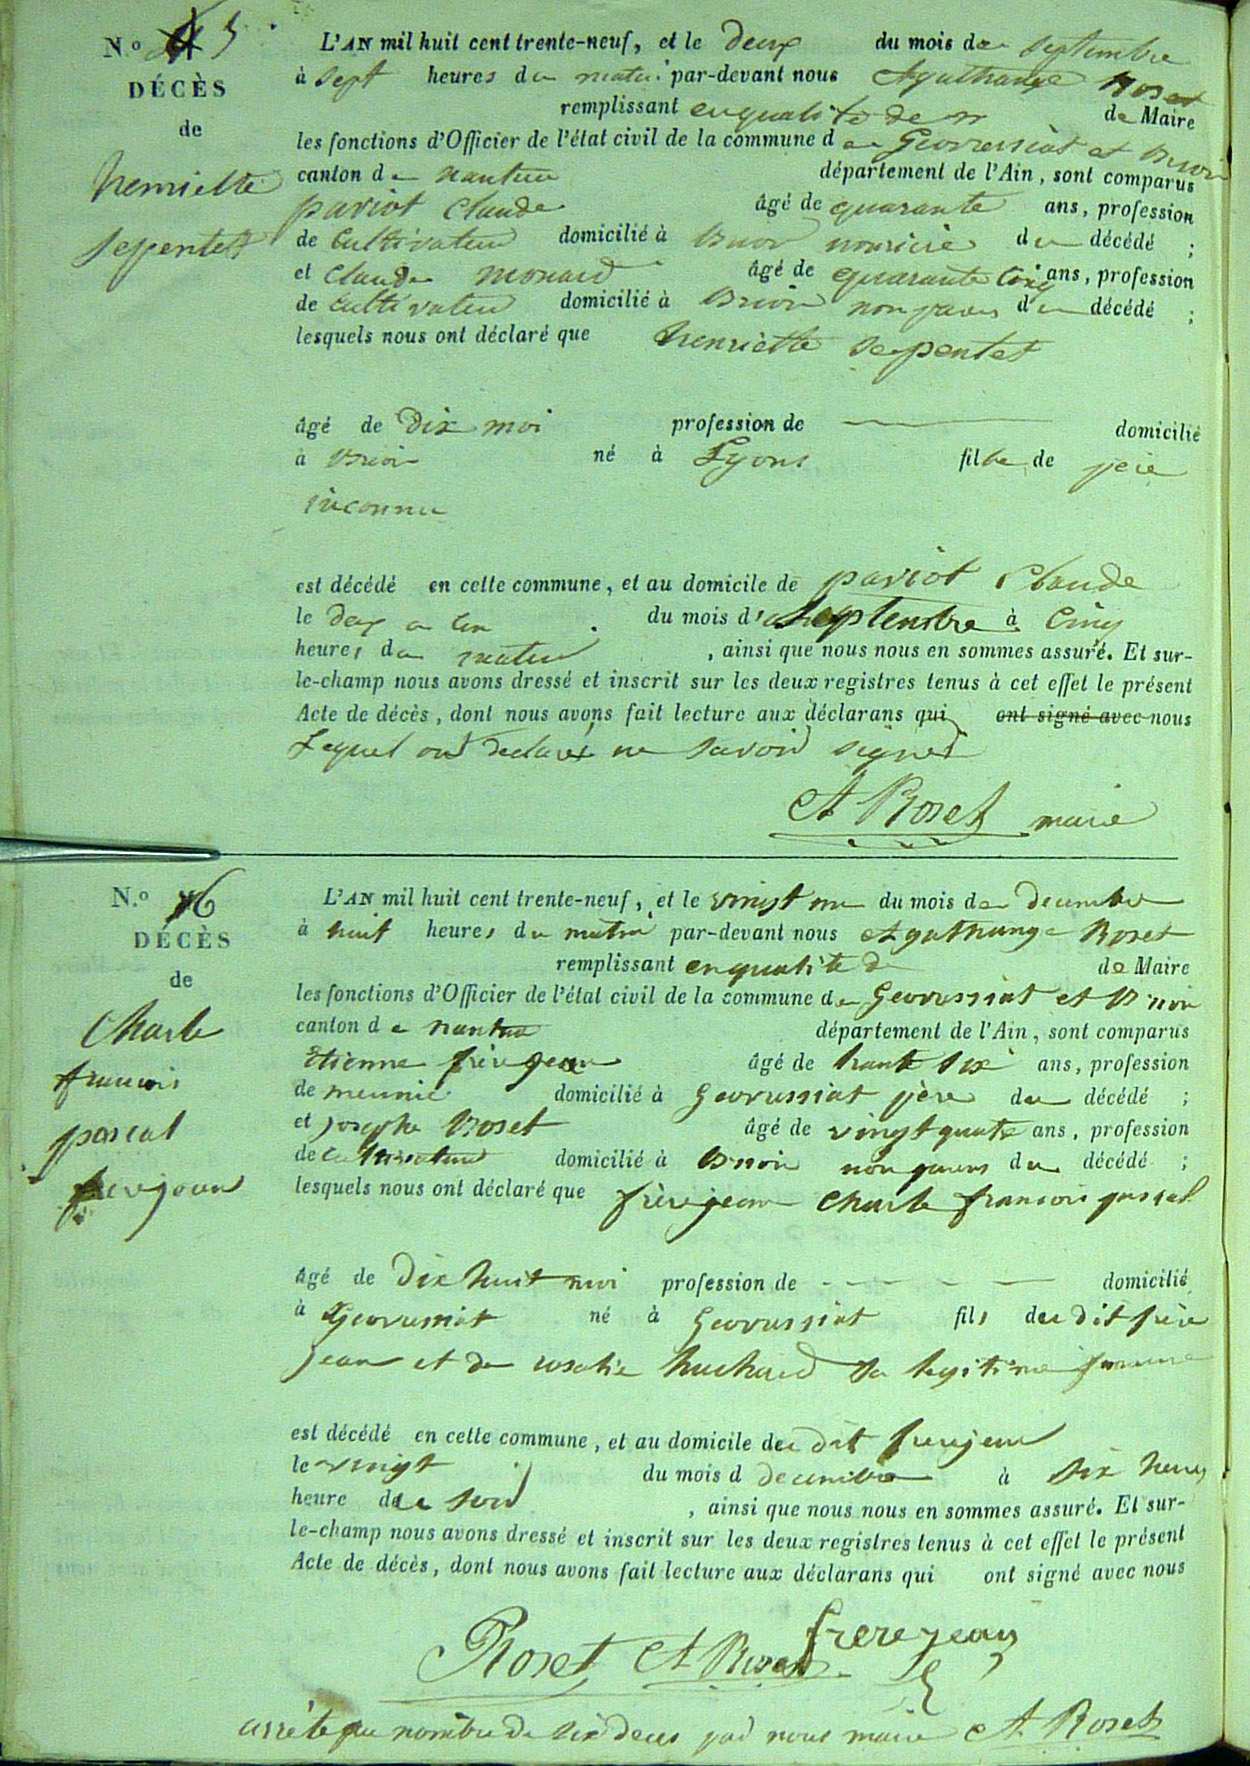 N.o 5
DÉCÈS
de
henriette
Sepentet
L'AN mil huit cent trente-neuf, et le deux du mois de septembre
à sept heures du matin par-devant nous Agathange Roset
remplissant en qualité de de Maire
les fonctions d'Officier de l'état civil de la commune de Geovressiat et Brion
canton de nantua département de l'Ain, sont comparus
pariot Claude âgé de quarante ans, profession
de Cultivateur domicilié à Brion nouricié du décédé ;
et Claude monard âgé de quarante cinq ans, profession
de Cultivateur domicilié à Brion non parens du décédé ;
lesquels nous ont déclaré que henriette Sepentet
âgé de Dix moi profession de domicilié
à Brion né à Lyons fille de père
inconnu
est décédé en cette commune, et au domicile de pariot Claude
le deux du mois de Septembre à Cinq
heures du matin , ainsi que nous nous en sommes assuré. Et sur-
le-champ nous avons dressé et inscrit sur les deux registres tenus à cet effet le présent
Acte de décès, dont nous avons fait lecture aux déclarans qui ont signé avec nous
Lequel ont declaré ne savoir signer
A Roset maire
N.o 6
DÉCÈS
de
Charle
francois
pascal
frerejean
L'AN mil huit cent trente-neuf, et le vingt un du mois de decembre
à huit heures du matin par-devant nous Agathange Roset
remplissant en qualité de de Maire
les fonctions d'Officier de l'état civil de la commune de Geovressiat et Brion
canton de nantua département de l'Ain, sont comparus
Etienne frèrejean âgé de trante six ans, profession
de meunié domicilié à Geovressiat père du décédé ;
et josephe Roset âgé de vingt quatre ans, profession
de cultivateur domicilié à Brion non parens du décédé ;
lesquels nous ont déclaré que frèrejean Charle francois pascal
âgé de Dix huit moi profession de domicilié
à Geovressiat né à Geovressiat fils du dit frère
jean et de rosalie huchard sa legitime femme
est décédé en cette commune, et au domicile du dit frerejean
le vingt du mois d decembre à six heures
heure du soir , ainsi que nous nous en sommes assuré. Et sur-
le-champ nous avons dressé et inscrit sur les deux registres tenus à cet effet le présent
Acte de décès, dont nous avons fait lecture aux déclarans qui ont signé avec nous
frerejean
Roset A Roset
arrête au nombre de six deces par nous maire A Roset